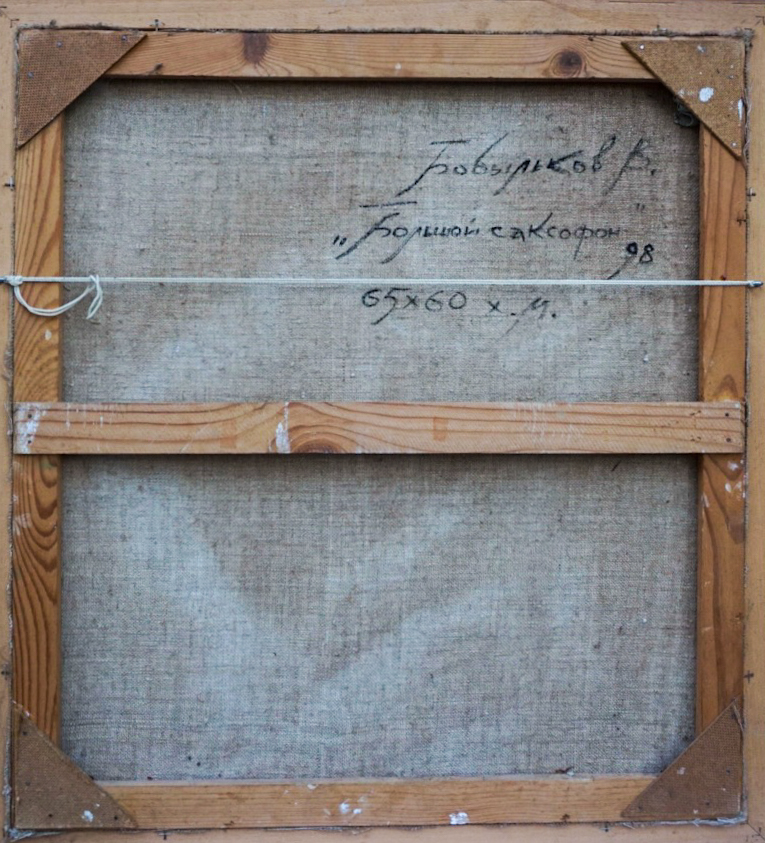 Бобыльков В.
„Большой саксофон"
98
65х60 х.м.